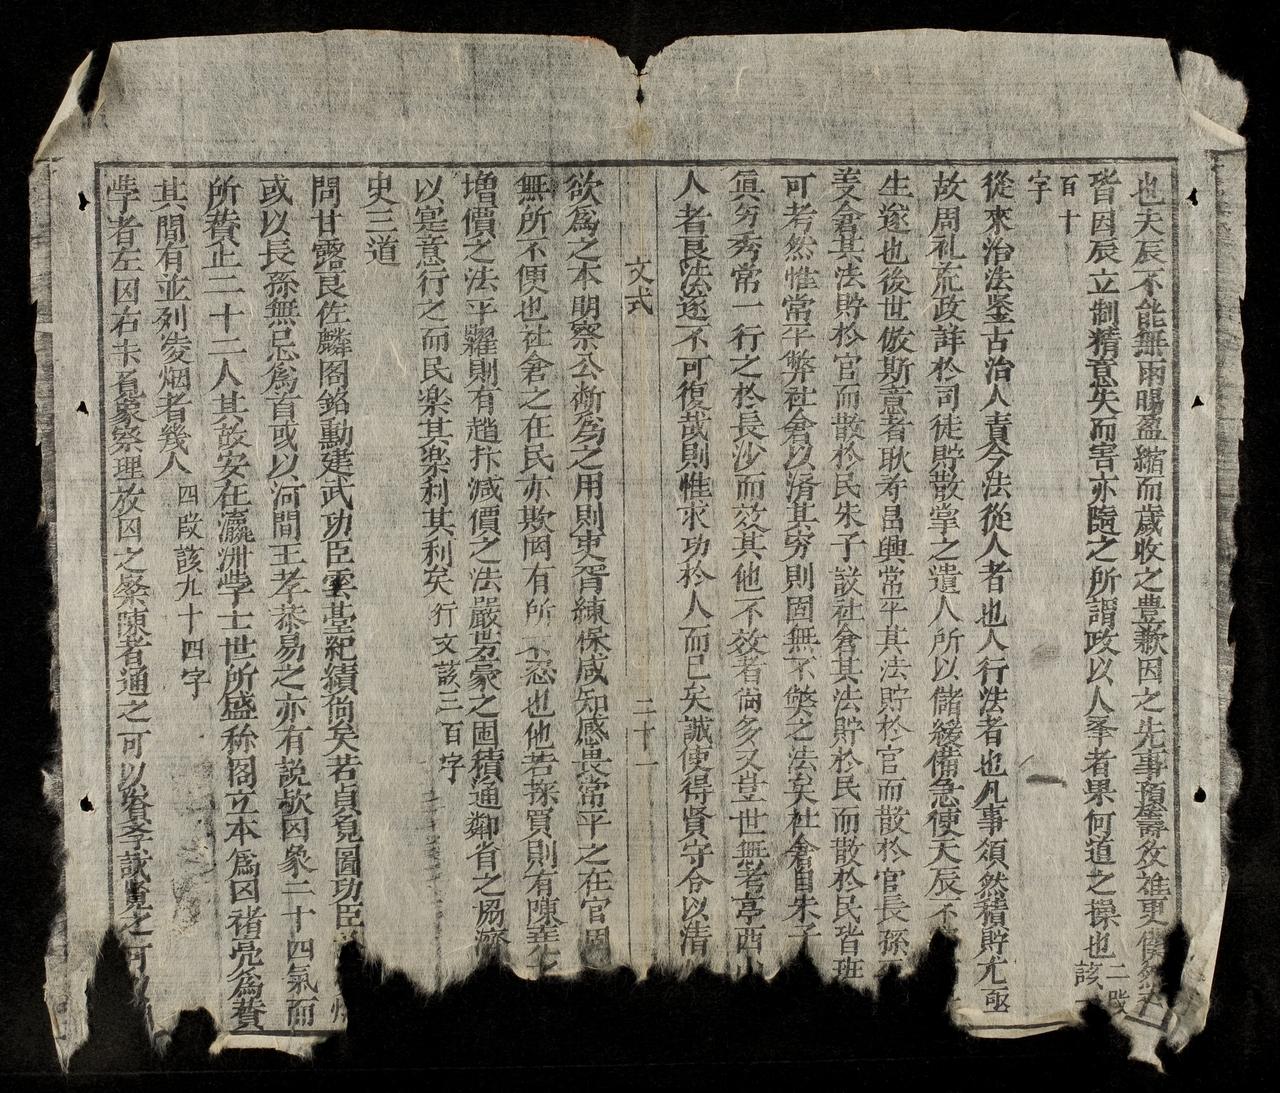 也夫辰不能無雨暘盈縮而歲收之豊歉因之先事預籌效雖更僕然
皆因辰立制精意失而害亦隨之所謂政以人夅者果何道之操也二段該
百十
字
從來治法鉴古治人責今法從人者也人行法者也凡事須然積貯尤亟
故周礼荒政詳於司徒貯散掌之遺人所以儲緩備急使天辰不
生遂也後世倣斯意者耿寿昌興常平其法貯於官而散於官長孫
姜倉其法貯於官而散於民朱子設社倉其法貯於民而散於民皆班
可考然惟常平弊社倉以済其穷則固無不獘之法矣社倉自朱子
眞穷秀常一行之於長沙而效其他不效者尚多又豈世無考亭西山
人者良法遂不可復哉則惟求功於人而已矣誠使得賢守令以清
文式
二十一
欲爲之本明察公断爲之用則吏胥練保咸知感畏常平之在官周
無所不便也社倉之在民亦欺罔有所不忍也他若採買則有陳堯之
增價之法平糶則有趙抃減價之法嚴势豪之囤積通鄰省之協濟
以寔意行之而民楽其楽利其利矣行文該三百字
史三道
問甘露良佐麟阁銘勳建武功臣雲臺紀績尚矣若貞观圖功臣
或以長孫無忌爲首或以河間王孝恭易之亦有説欤囚象二十四氣而
所賛止二十二人其故安在瀛洲斈士世所盛称阁立本爲囚褚亮爲賛
其間有並列凌烟者幾人四段該九十四字
斈者左囚右书覓象察理放囚之粲陳者通之可以資孝誠覽之可以